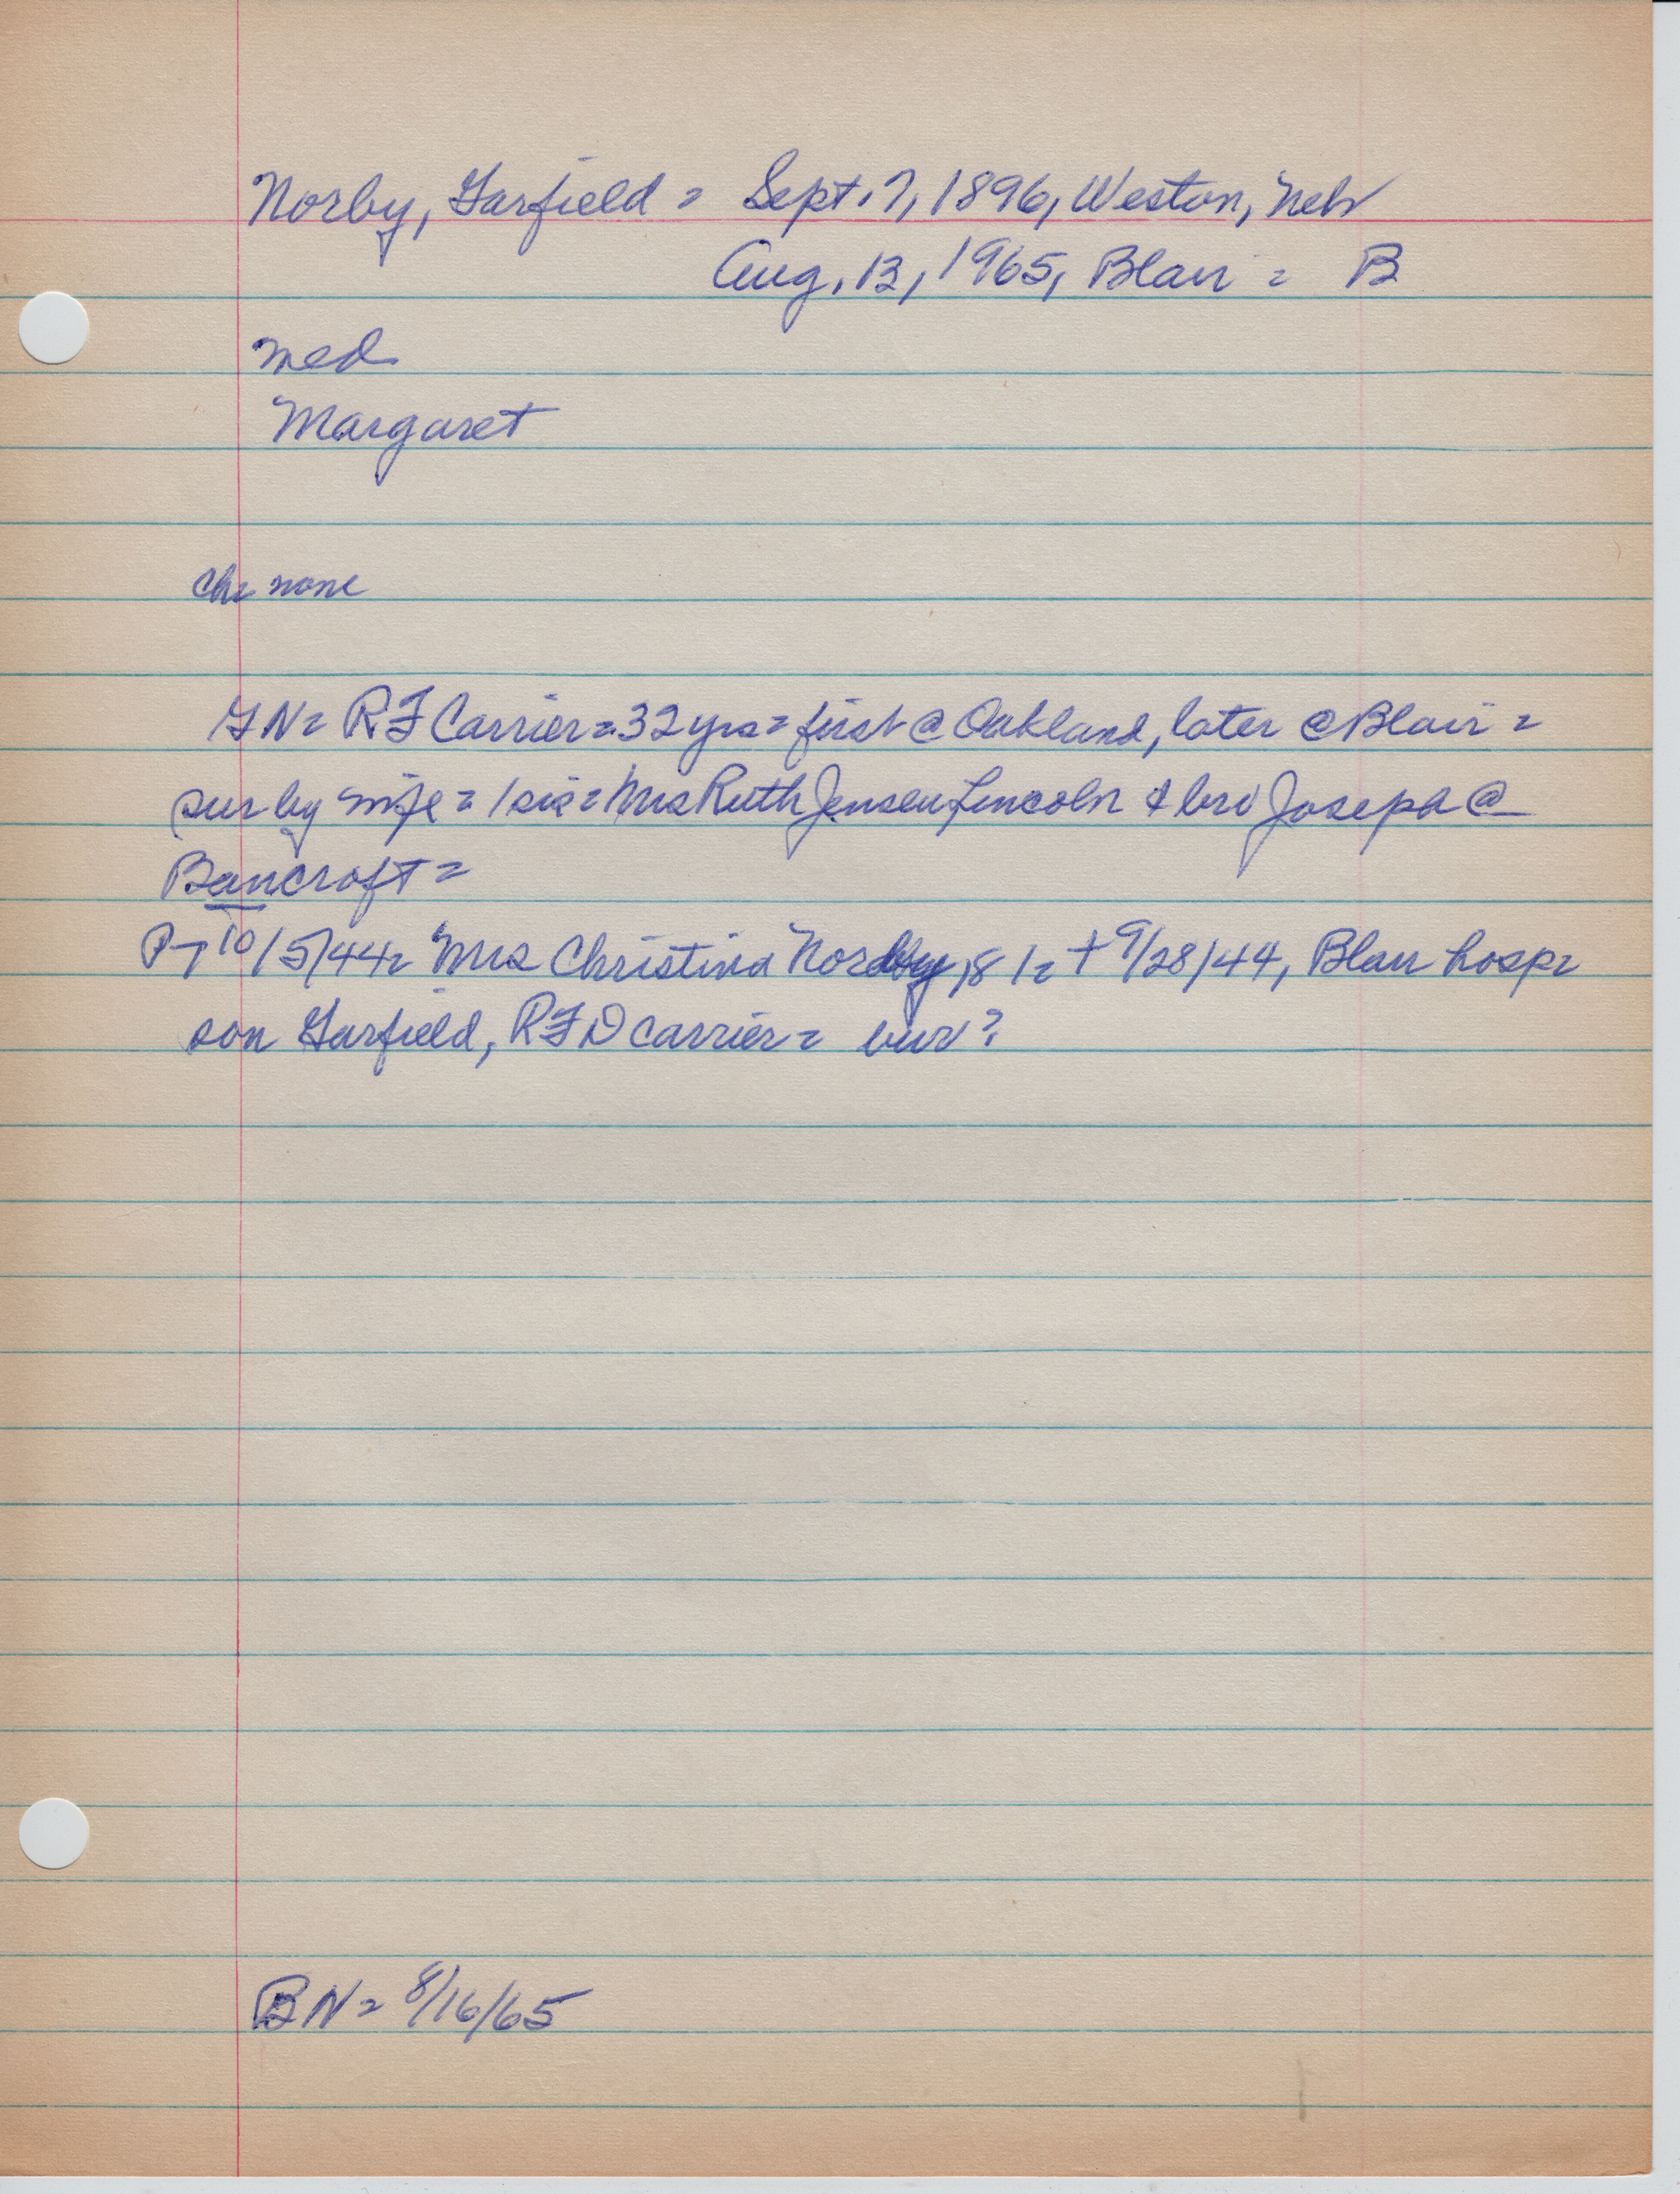 Norby, Garfield = Sept. 7, 1896, Weston, Nebr
Aug. 13, 1965, Blair = B
med
Margaret
Ch = none
GN = RF Carrier = 32 yrs = first @ Oakland, later @ Blair =
sur by wife = 1 sis = Mrs Ruth Jensen Lincoln & bro Joseph @
Bancroft =
P-T 10/5/44 = Mrs Christina Norby, 81 = + 9/28/44, Blair hosp =
son Garfield, RFD carrier = bur?
BN = 8/16/65